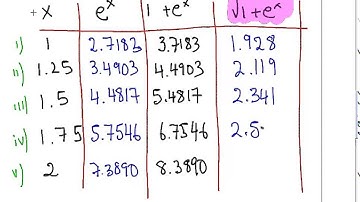 x e^x 1+e^x √1+e^x
i) 1 2.7183 3.7183 1.928
ii) 1.25 3.4903 4.4903 2.119
iii) 1.5 4.4817 5.4817 2.341
iv) 1.75 5.7546 6.7546 2.5
v) 2 7.3890 8.3890